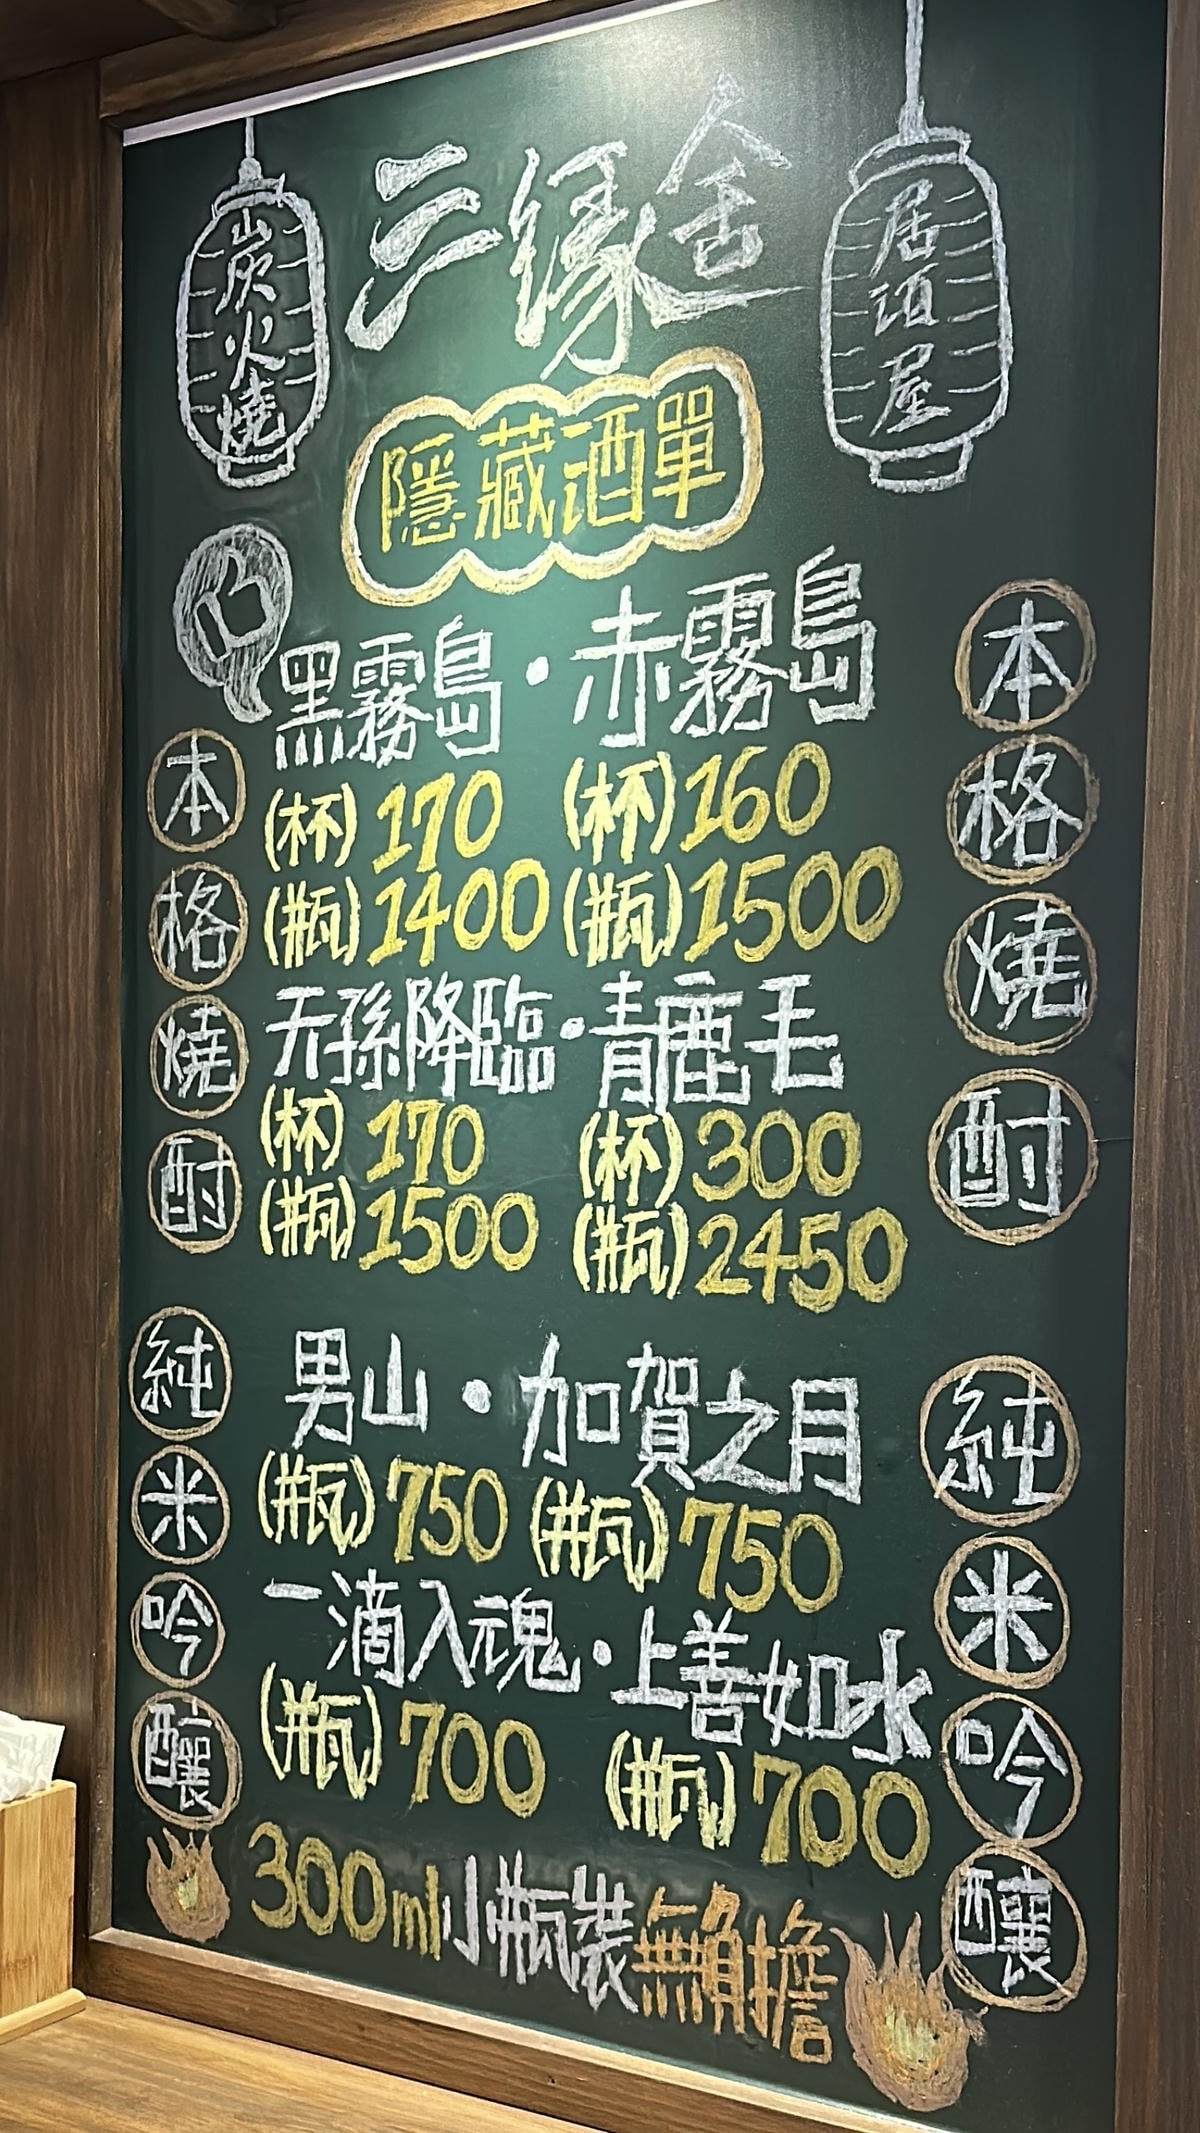 三緣舍
炭火燒
居酒屋
隱藏酒單
黑霧島・赤霧島
(杯)170 (杯)160
(瓶)1400 (瓶)1500
天孫降臨・青鹿毛
(杯)170 (杯)300
(瓶)1500 (瓶)2450
本格燒酎
本格燒酎
男山・加賀之月
(瓶)750 (瓶)750
一滴入魂・上善如水
(瓶)700 (瓶)700
純米吟釀
純米吟釀
300ml小瓶裝無負擔